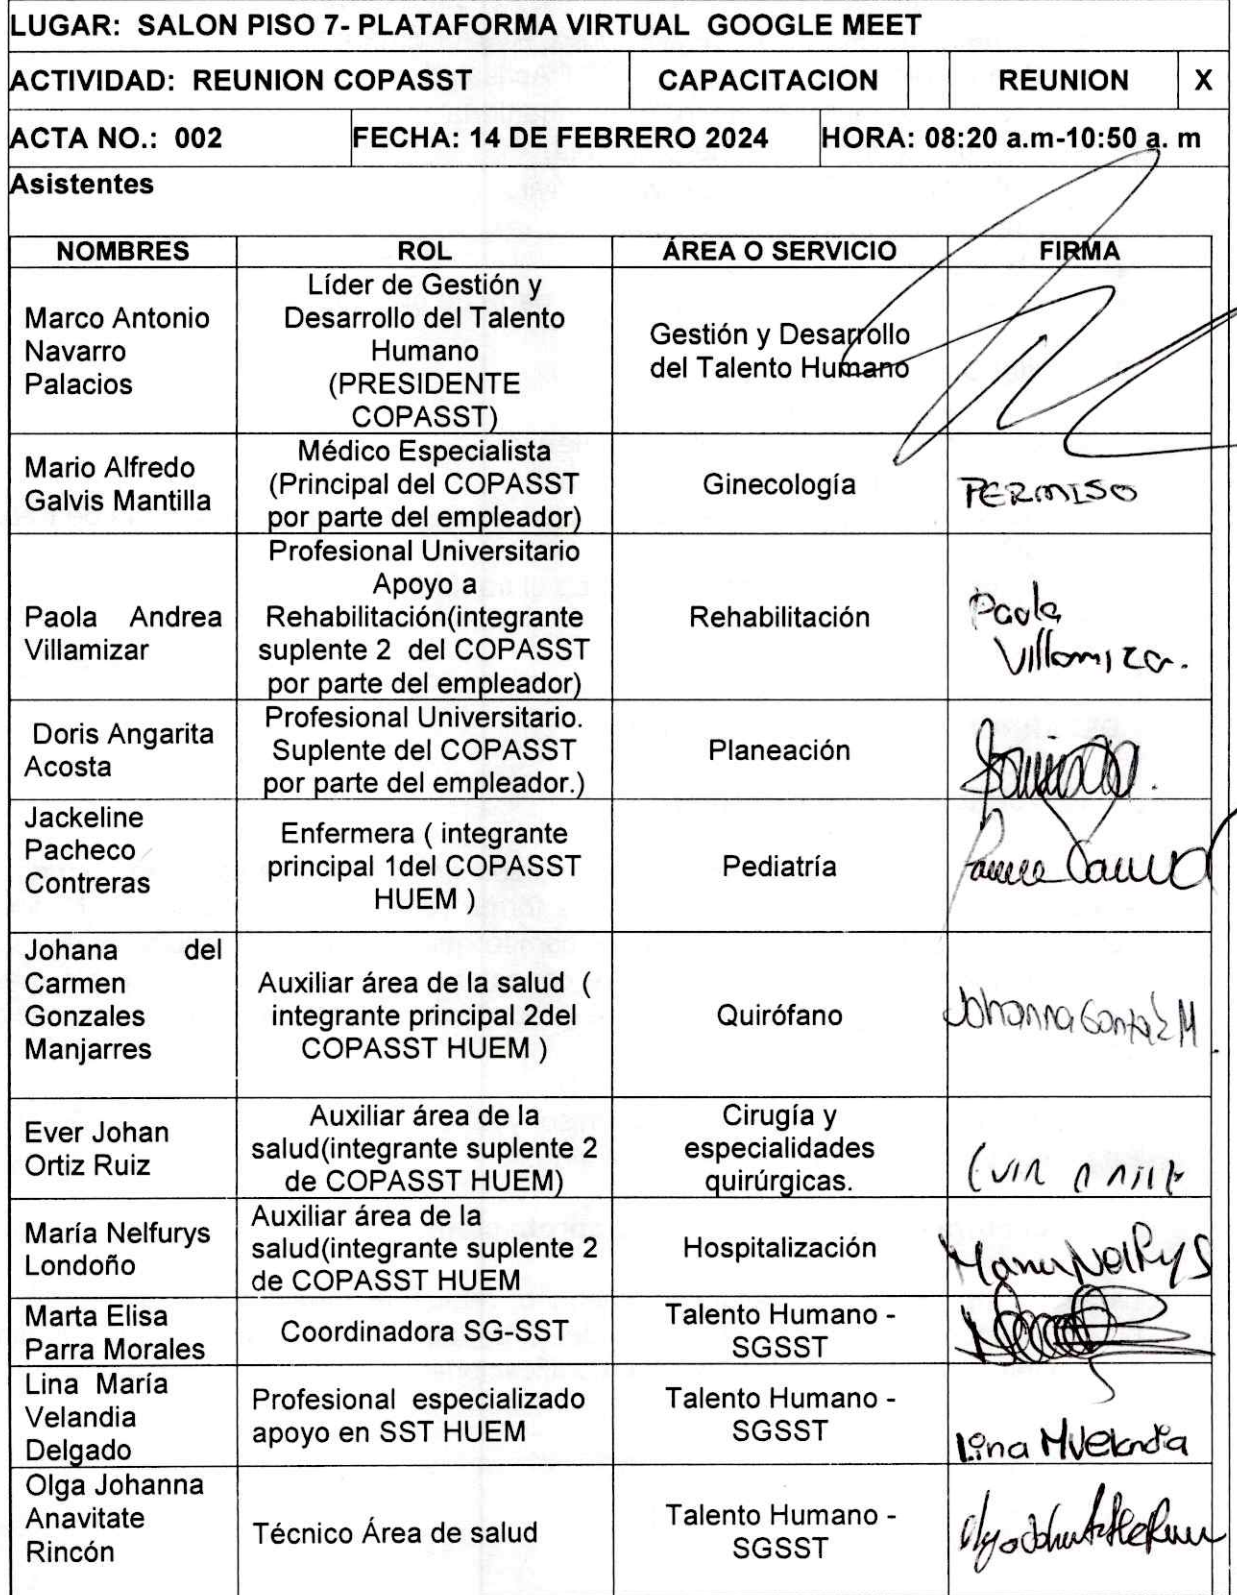 LUGAR: SALON PISO 7- PLATAFORMA VIRTUAL GOOGLE MEET
ACTIVIDAD: REUNION COPASST CAPACITACION REUNION X
ACTA NO.: 002 FECHA: 14 DE FEBRERO 2024 HORA: 08:20 a.m-10:50 a. m
Asistentes
NOMBRES ROL ÁREA O SERVICIO FIRMA
Marco Antonio
Navarro
Palacios
Líder de Gestión y
Desarrollo del Talento
Humano
(PRESIDENTE
COPASST)
Gestión y Desarrollo
del Talento Humano
Mario Alfredo
Galvis Mantilla
Médico Especialista
(Principal del COPASST
por parte del empleador)
Ginecología
PERMISO
Paola Andrea
Villamizar
Profesional Universitario
Apoyo a
Rehabilitación(integrante
suplente 2 del COPASST
por parte del empleador)
Rehabilitación
Paola
Villamizar.
Doris Angarita
Acosta
Profesional Universitario.
Suplente del COPASST
por parte del empleador.)
Planeación
Jackeline
Pacheco
Contreras
Enfermera ( integrante
principal 1del COPASST
HUEM )
Pediatría
Johana del
Carmen
Gonzales
Manjarres
Auxiliar área de la salud (
integrante principal 2del
COPASST HUEM )
Quirófano
Johanna Gonzalez M
Ever Johan
Ortiz Ruiz
Auxiliar área de la
salud(integrante suplente 2
de COPASST HUEM)
Cirugía y
especialidades
quirúrgicas.
María Nelfurys
Londoño
Auxiliar área de la
salud(integrante suplente 2
de COPASST HUEM
Hospitalización
Maria Nelfurys
Marta Elisa
Parra Morales
Coordinadora SG-SST
Talento Humano -
SGSST
Lina María
Velandia
Delgado
Profesional especializado
apoyo en SST HUEM
Talento Humano -
SGSST
Lina M Velandia
Olga Johanna
Anavitate
Rincón
Técnico Área de salud
Talento Humano -
SGSST